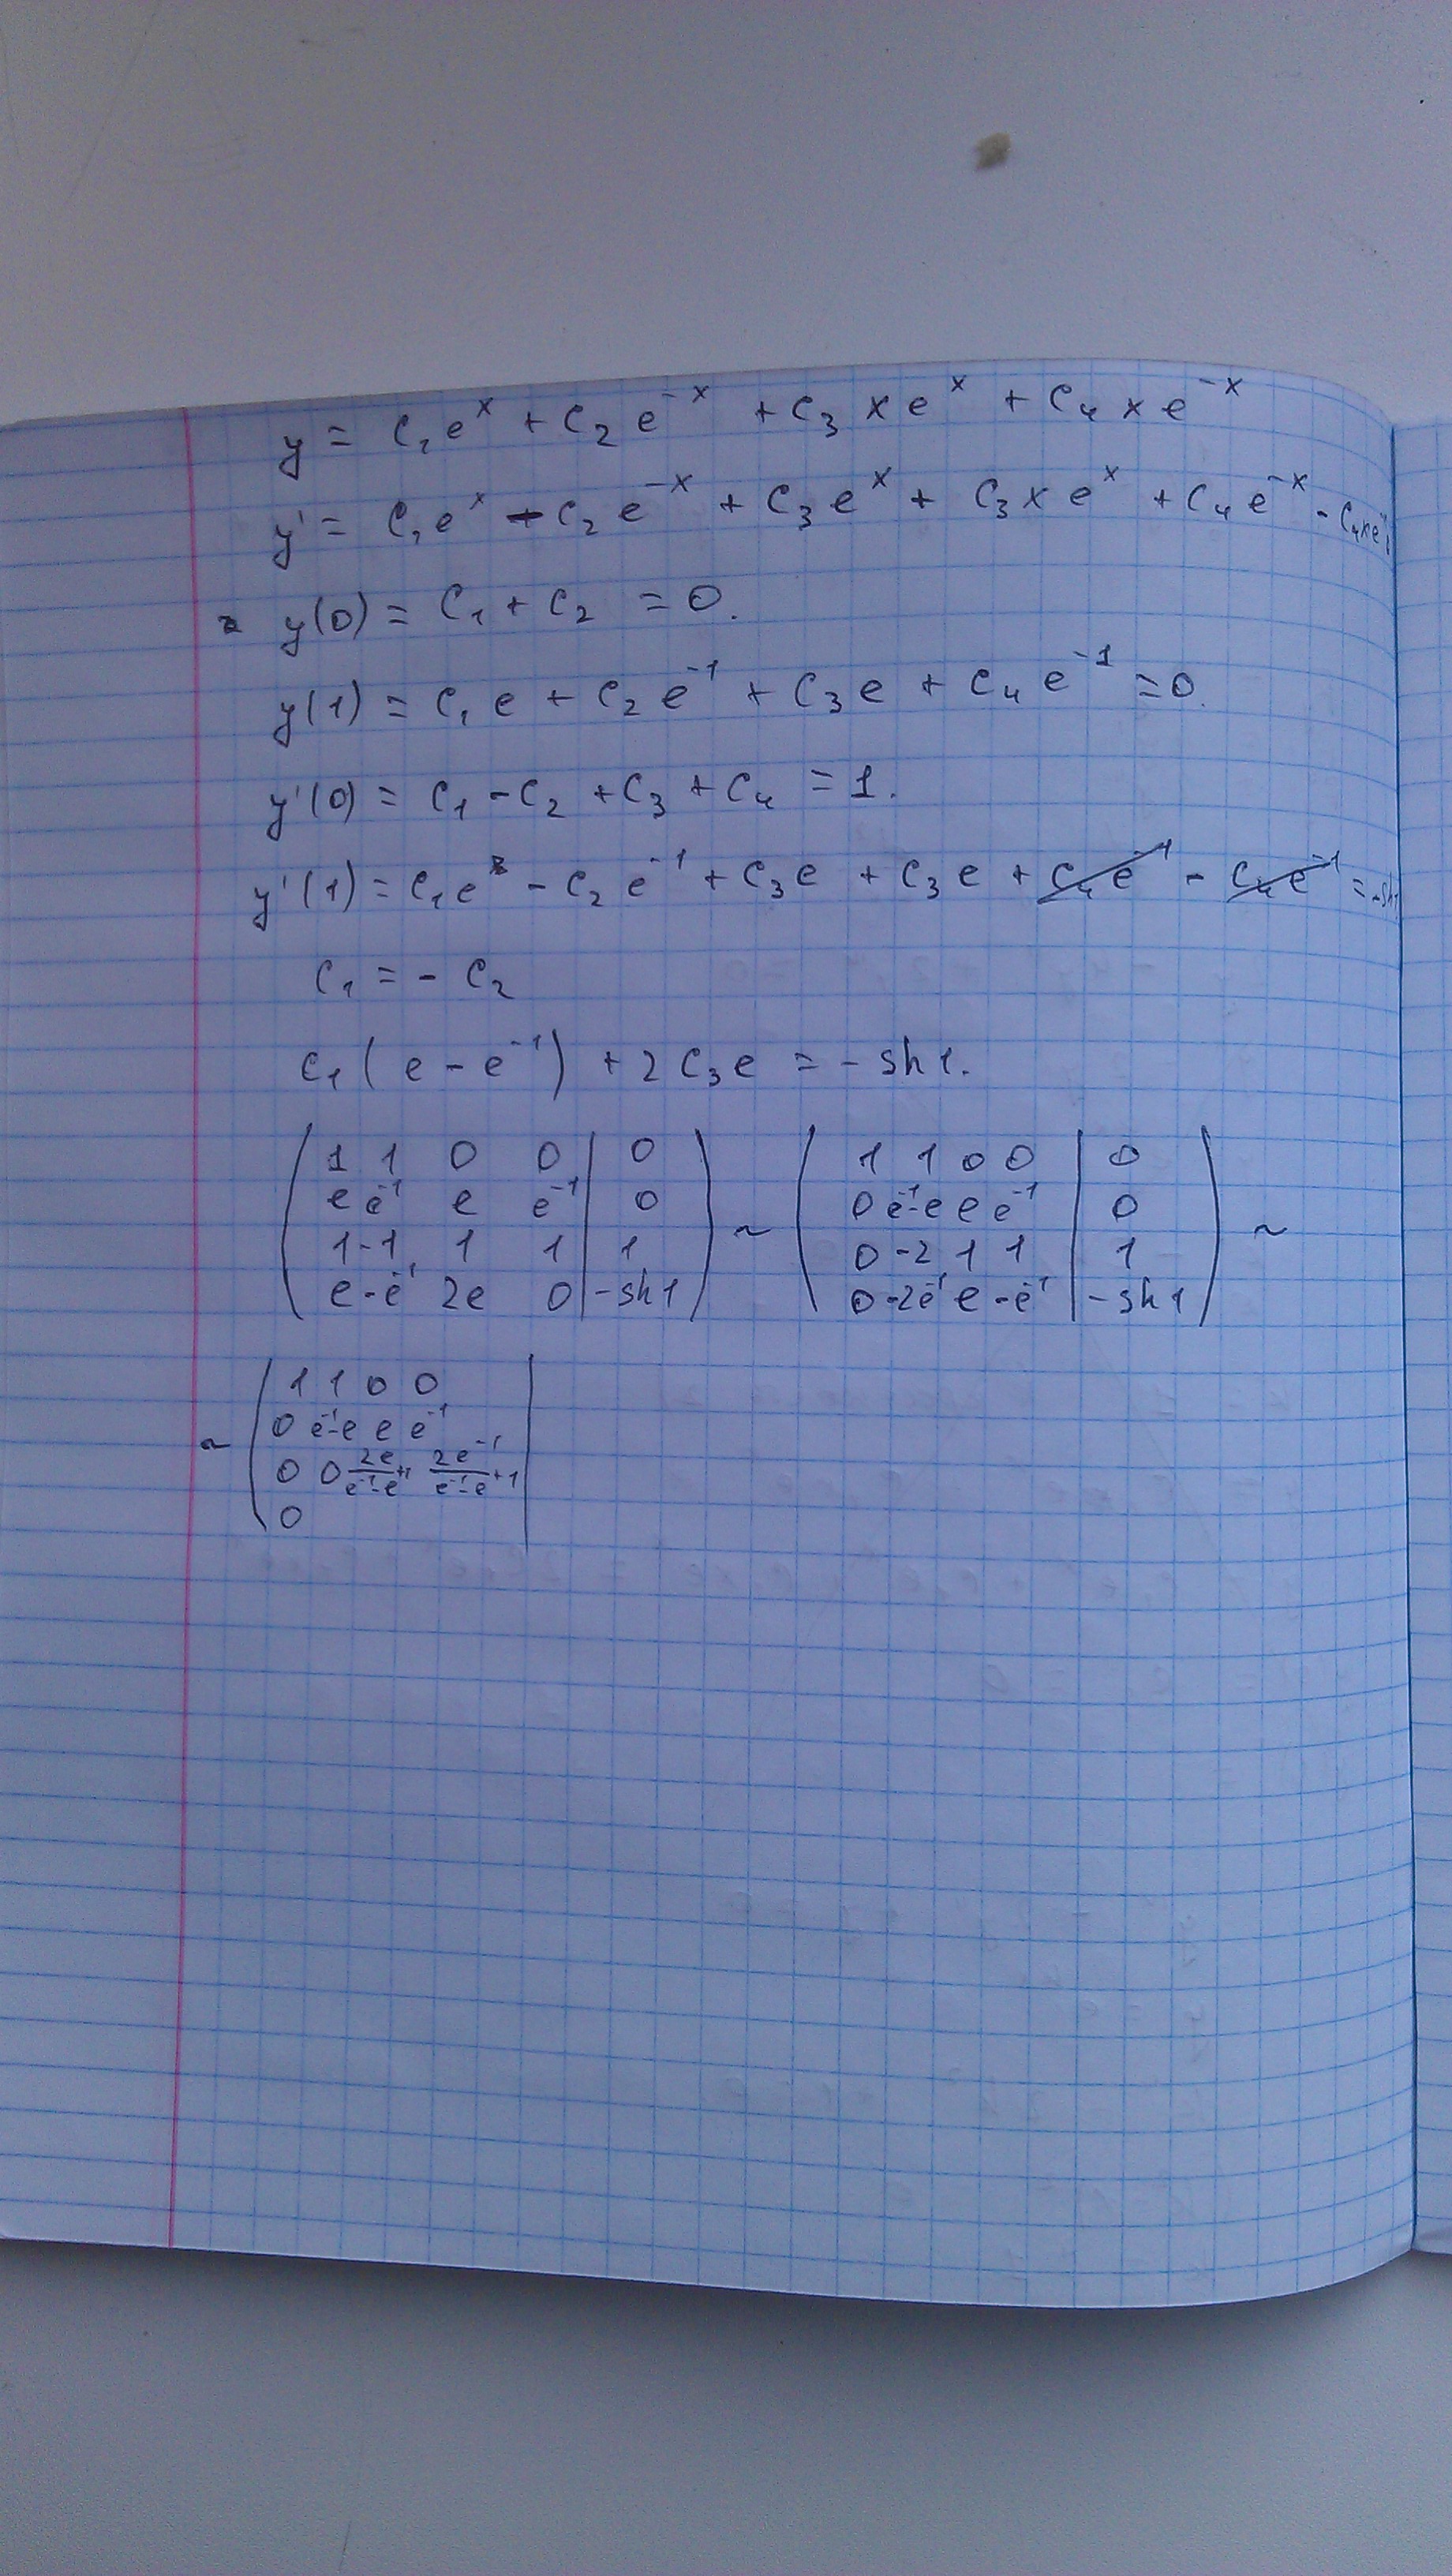 y = C₁eˣ + C₂e⁻ˣ + C₃xeˣ + C₄xe⁻ˣ
y' = C₁eˣ - C₂e⁻ˣ + C₃eˣ + C₃xeˣ + C₄e⁻ˣ - C₄xe⁻ˣ
y(0) = C₁ + C₂ = 0.
y(1) = C₁e + C₂e⁻¹ + C₃e + C₄e⁻¹ = 0.
y'(0) = C₁ - C₂ + C₃ + C₄ = 1.
y'(1) = C₁e - C₂e⁻¹ + C₃e + C₃e + C₄e⁻¹ - C₄e⁻¹ = -sh1
C₁ = - C₂
C₁(e - e⁻¹) + 2C₃e = - sh1.
1 1 0 0 | 0 ~ 1 1 0 0 | 0 ~
e e⁻¹ e e⁻¹ | 0 0 e⁻¹-e e e⁻¹ | 0
1 -1 1 1 | 1 0 -2 1 1 | 1
e -e⁻¹ 2e 0 | -sh1 0 -2e⁻¹ e -e⁻¹ | -sh1
~ 1 1 0 0
0 e⁻¹-e e e⁻¹
0 0 2e/(e⁻¹-e)+1 2e⁻¹/(e⁻¹-e)+1
0